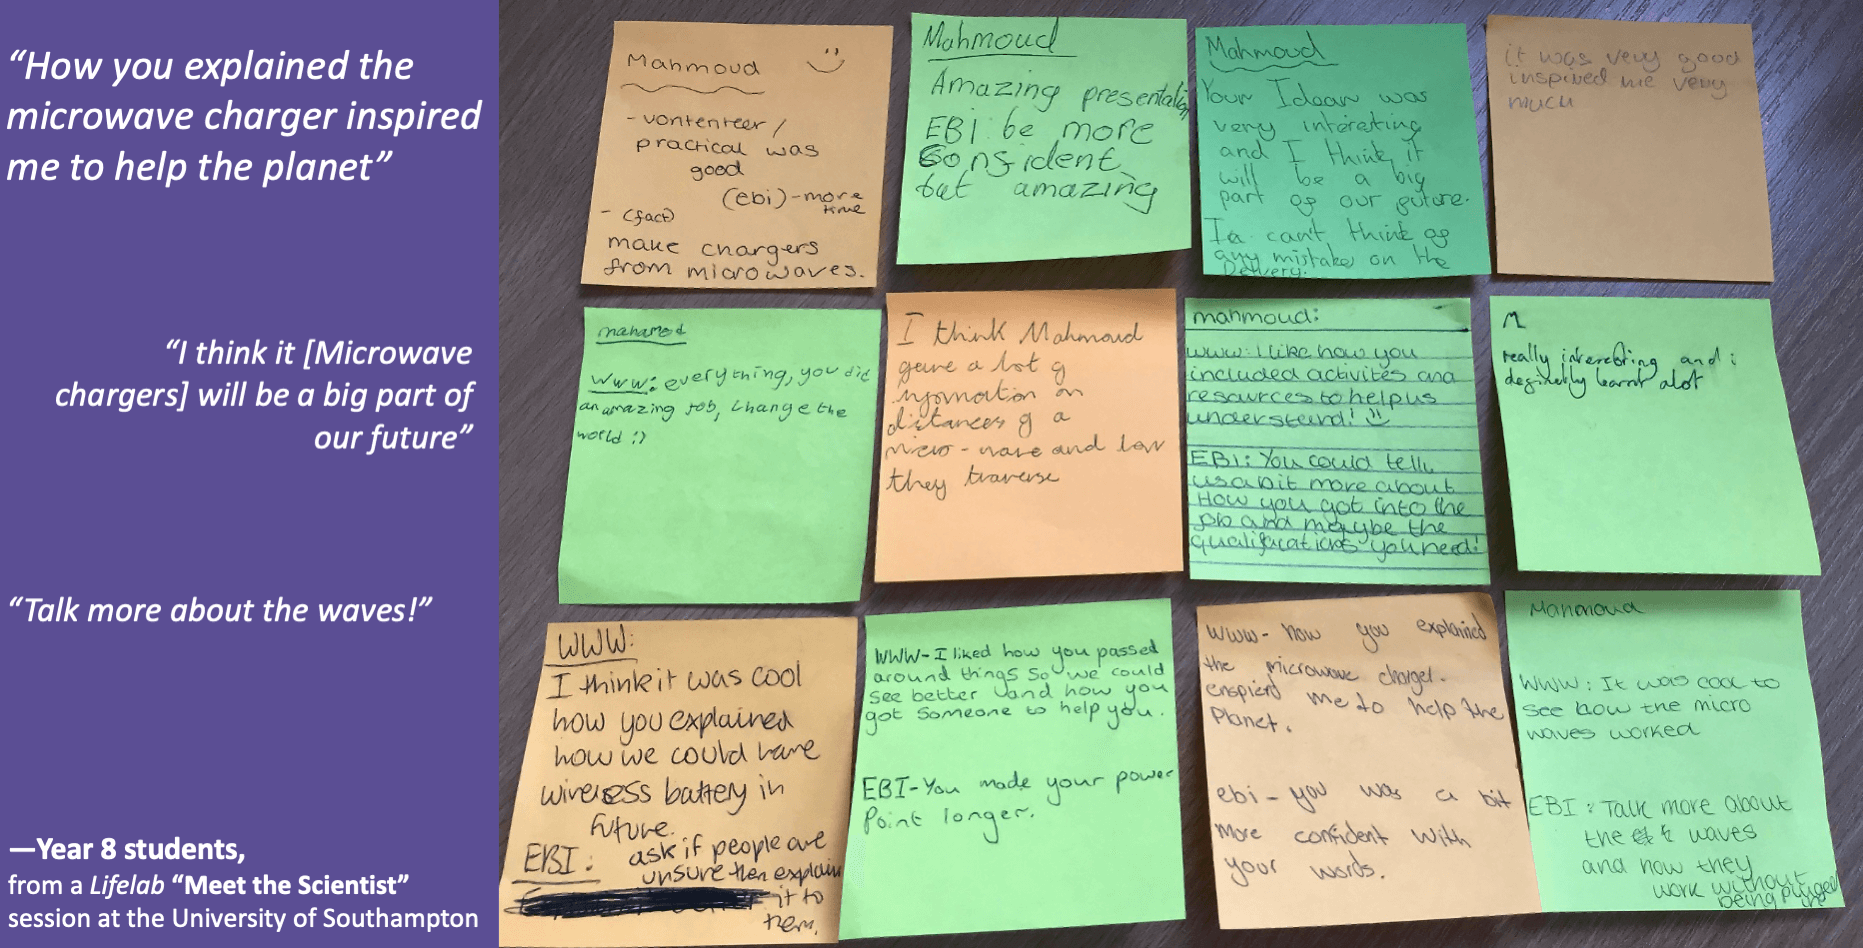 “How you explained the
microwave charger inspired
me to help the planet”
“I think it [Microwave
chargers] will be a big part of
our future”
“Talk more about the waves!”
—Year 8 students,
from a Lifelab “Meet the Scientist”
session at the University of Southampton
Mahmoud
- vontenteer /
practical was
good
(ebi) - more
time
- (fact)
make chargers
from microwaves.
Mahmoud
Amazing presentation
EBI be more
Confident
but amazing
Mahmoud
Your Idear was
very interesting
and I think it
will be a big
part of our future.
I cant think of
any mistake on the
Delivery.
it was very good
inspired me very
much
mahamod
www: everything, you did
an amazing job, change the
world :)
I think Mahmoud
gave a lot of
information on
distances of a
micro-wave and how
they traverse
mahmoud:
www: I like how you
included activites and
resources to help us
understand! :)
EBI: You could tell
us a bit more about
How you got into the
job and maybe the
qualifications you need!
M
really interesting and i
definetly learnt alot
WWW:
I think it was cool
how you explained
how we could have
wireless battery in
future.
EBI: ask if people are
unsure then explain
it to
them.
WWW- I liked how you passed
around things so we could
see better and how you
got someone to help you.
EBI- You made your power
Point longer.
WWW- how you explained
the microwave charger.
enspierd me to help the
Planet.
ebi - you was a bit
more confident with
your words.
Mahmoud
WWW: It was cool to
see how the micro
waves worked
EBI: Talk more about
the waves
and how they
work without
being plugged
in